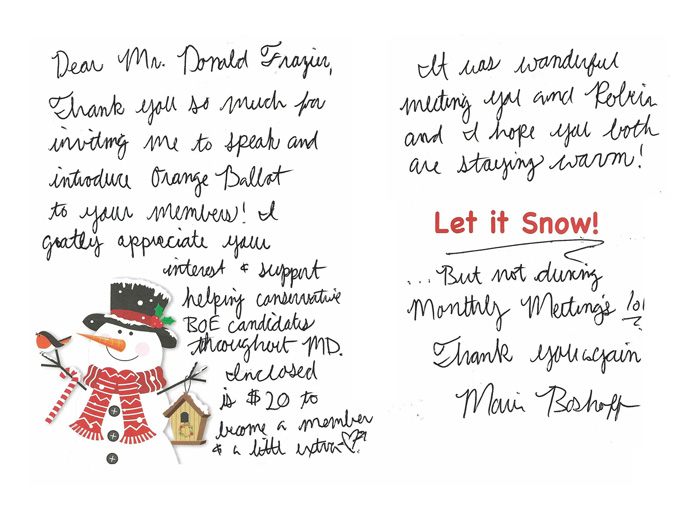 Dear Mr. Donald Frazier,
Thank you so much for
inviting me to speak and
introduce Orange Ballot
to your members! I
greatly appreciate your
interest & support
helping conservative
BOE candidates
throughout MD.
Inclosed
is $20 to
become a member
& a little extra
It was wonderful
meeting you and Robin
and I hope you both
are staying warm!
Let it Snow!
...But not during
Monthly Meeting's lol
Thank you again
Boshoff